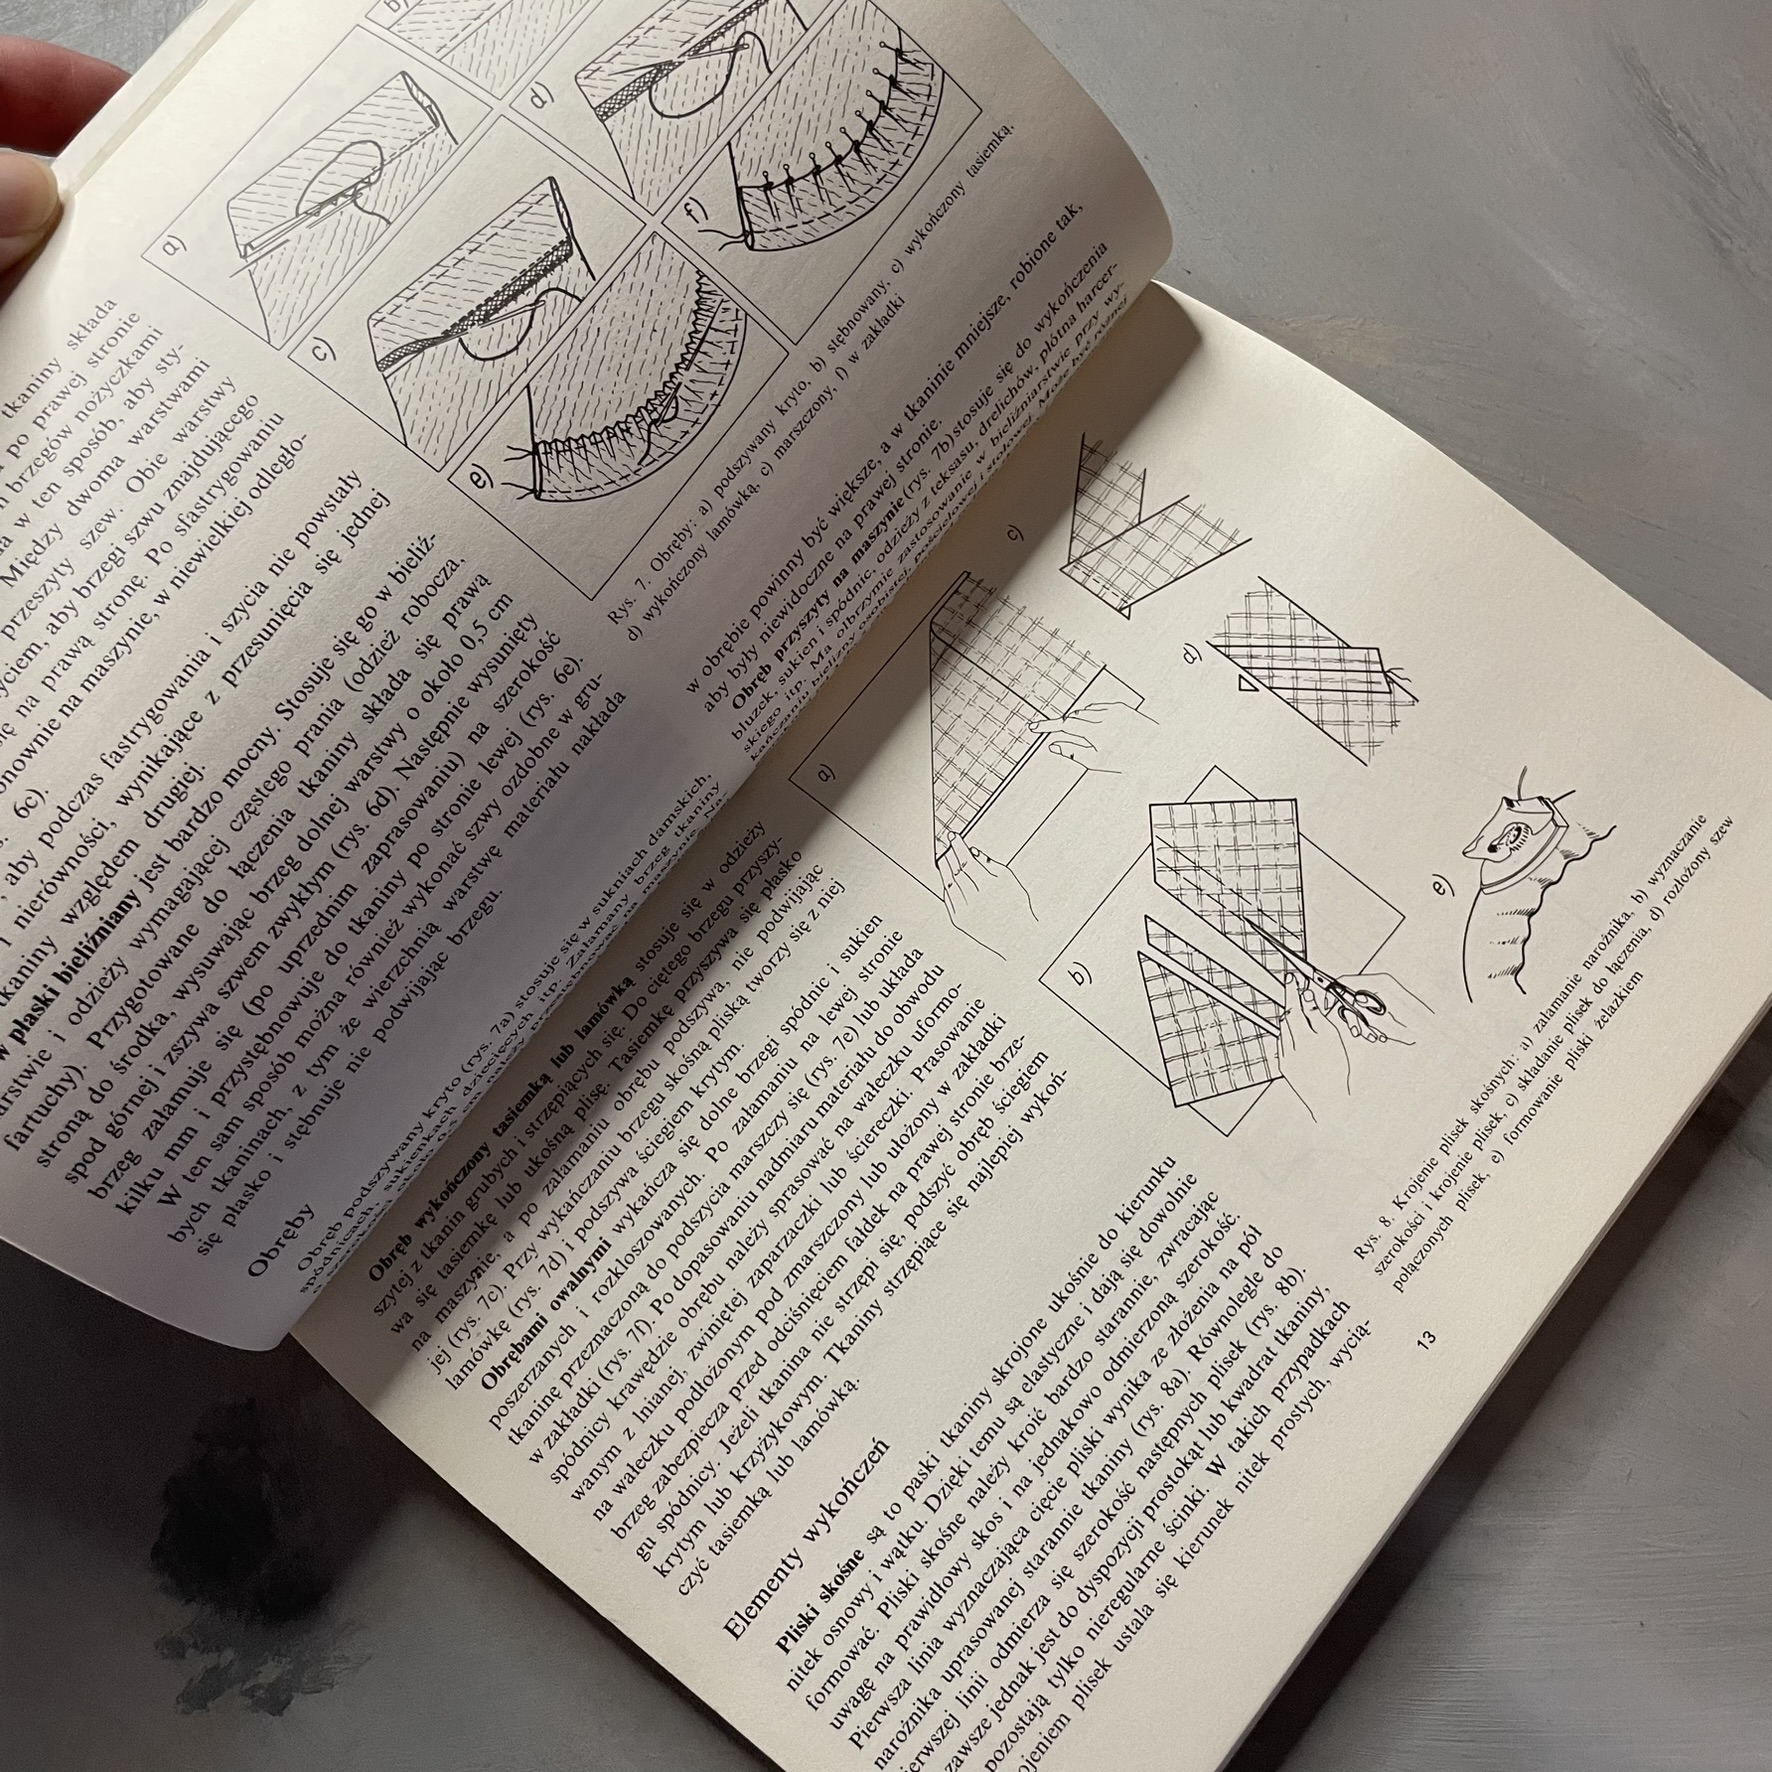 tkaniny składa
po prawej stronie
brzegów nożyczkami
w ten sposób, aby sty-
Między dwoma warstwami
przeszyty szew. Obie warstwy
aby brzegi szwu znajdującego
się na prawą stronę. Po sfastrygowaniu
na maszynie, w niewielkiej odległo-
6c).
, aby podczas fastrygowania i szycia nie powstały
i nierówności, wynikające z przesunięcia się jednej
tkaniny względem drugiej.
w płaski bieliźniany jest bardzo mocny. Stosuje się go w bieliź-
i odzieży wymagającej częstego prania (odzież robocza,
fartuchy). Przygotowane do łączenia tkaniny składa się prawą
stroną do środka, wysuwając brzeg dolnej warstwy o około 0,5 cm
spod górnej i zszywa szwem zwykłym (rys. 6d). Następnie wysunięty
brzeg załamuje się (po uprzednim zaprasowaniu) na szerokość
kilku mm i przystębnowuje do tkaniny po stronie lewej (rys. 6e).
W ten sam sposób można również wykonać szwy ozdobne w gru-
bych tkaninach, z tym że wierzchnią warstwę materiału nakłada
się płasko i stębnuje nie podwijając brzegu.
Obręby
Obręb podszywany kryto (rys. 7a) stosuje się w sukniach damskich,
spódnicach, sukienkach dziecięcych itp. Załamany brzeg tkaniny
b)
a)
d)
c)
f)
e)
Rys. 7. Obręby: a) podszywany kryto, b) stębnowany, c) wykończony tasiemką,
d) wykończony lamówką, e) marszczony, f) w zakładki
w obrębie powinny być większe, a w tkaninie mniejsze, robione tak,
aby były niewidoczne na prawej stronie.
Obręb przyszyty na maszynie (rys. 7b) stosuje się do wykończenia
bluzek, sukien i spódnic, odzieży z teksasu, drelichów, płótna harcer-
skiego itp. Ma olbrzymie zastosowanie w bieliźniarstwie przy wy-
kańczaniu bielizny osobistej, pościelowej i stołowej. Może być różnej
Obręb wykończony tasiemką lub lamówką stosuje się w odzieży
szytej z tkanin grubych i strzępiących się. Do ciętego brzegu przyszy-
wa się tasiemkę lub ukośną plisę. Tasiemkę przyszywa się płasko
na maszynie, a po załamaniu obrębu podszywa, nie podwijając
jej (rys. 7c). Przy wykańczaniu brzegu skośną pliską tworzy się z niej
lamówkę (rys. 7d) i podszywa ściegiem krytym.
Obrębami owalnymi wykańcza się dolne brzegi spódnic i sukien
poszerzanych i rozkloszowanych. Po załamaniu na lewej stronie
tkaninę przeznaczoną do podszycia marszczy się (rys. 7e) lub układa
w zakładki (rys. 7f). Po dopasowaniu nadmiaru materiału do obwodu
spódnicy krawędzie obrębu należy sprasować na wałeczku uformo-
wanym z lnianej, zwiniętej zaparzaczki lub ściereczki. Prasowanie
na wałeczku podłożonym pod zmarszczony lub ułożony w zakładki
brzeg zabezpiecza przed odciśnięciem fałdek na prawej stronie brze-
gu spódnicy. Jeżeli tkanina nie strzępi się, podszyć obręb ściegiem
krytym lub krzyżykowym. Tkaniny strzępiące się najlepiej wykoń-
czyć tasiemką lub lamówką.
Elementy wykończeń
Pliski skośne są to paski tkaniny skrojone ukośnie do kierunku
nitek osnowy i wątku. Dzięki temu są elastyczne i dają się dowolnie
formować. Pliski skośne należy kroić bardzo starannie, zwracając
uwagę na prawidłowy skos i na jednakowo odmierzoną szerokość.
Pierwsza linia wyznaczająca cięcie pliski wynika ze złożenia na pół
narożnika uprasowanej starannie tkaniny (rys. 8a). Równolegle do
pierwszej linii odmierza się szerokość następnych plisek (rys. 8b).
zawsze jednak jest do dyspozycji prostokąt lub kwadrat tkaniny,
pozostają tylko nieregularne ścinki. W takich przypadkach
plisek ustala się kierunek nitek prostych, wycią-
a)
c)
d)
b)
e)
Rys. 8. Krojenie plisek skośnych: a) załamanie narożnika, b) wyznaczanie
szerokości i krojenie plisek, c) składanie plisek do łączenia, d) rozłożony szew
połączonych plisek, e) formowanie pliski żelazkiem
13